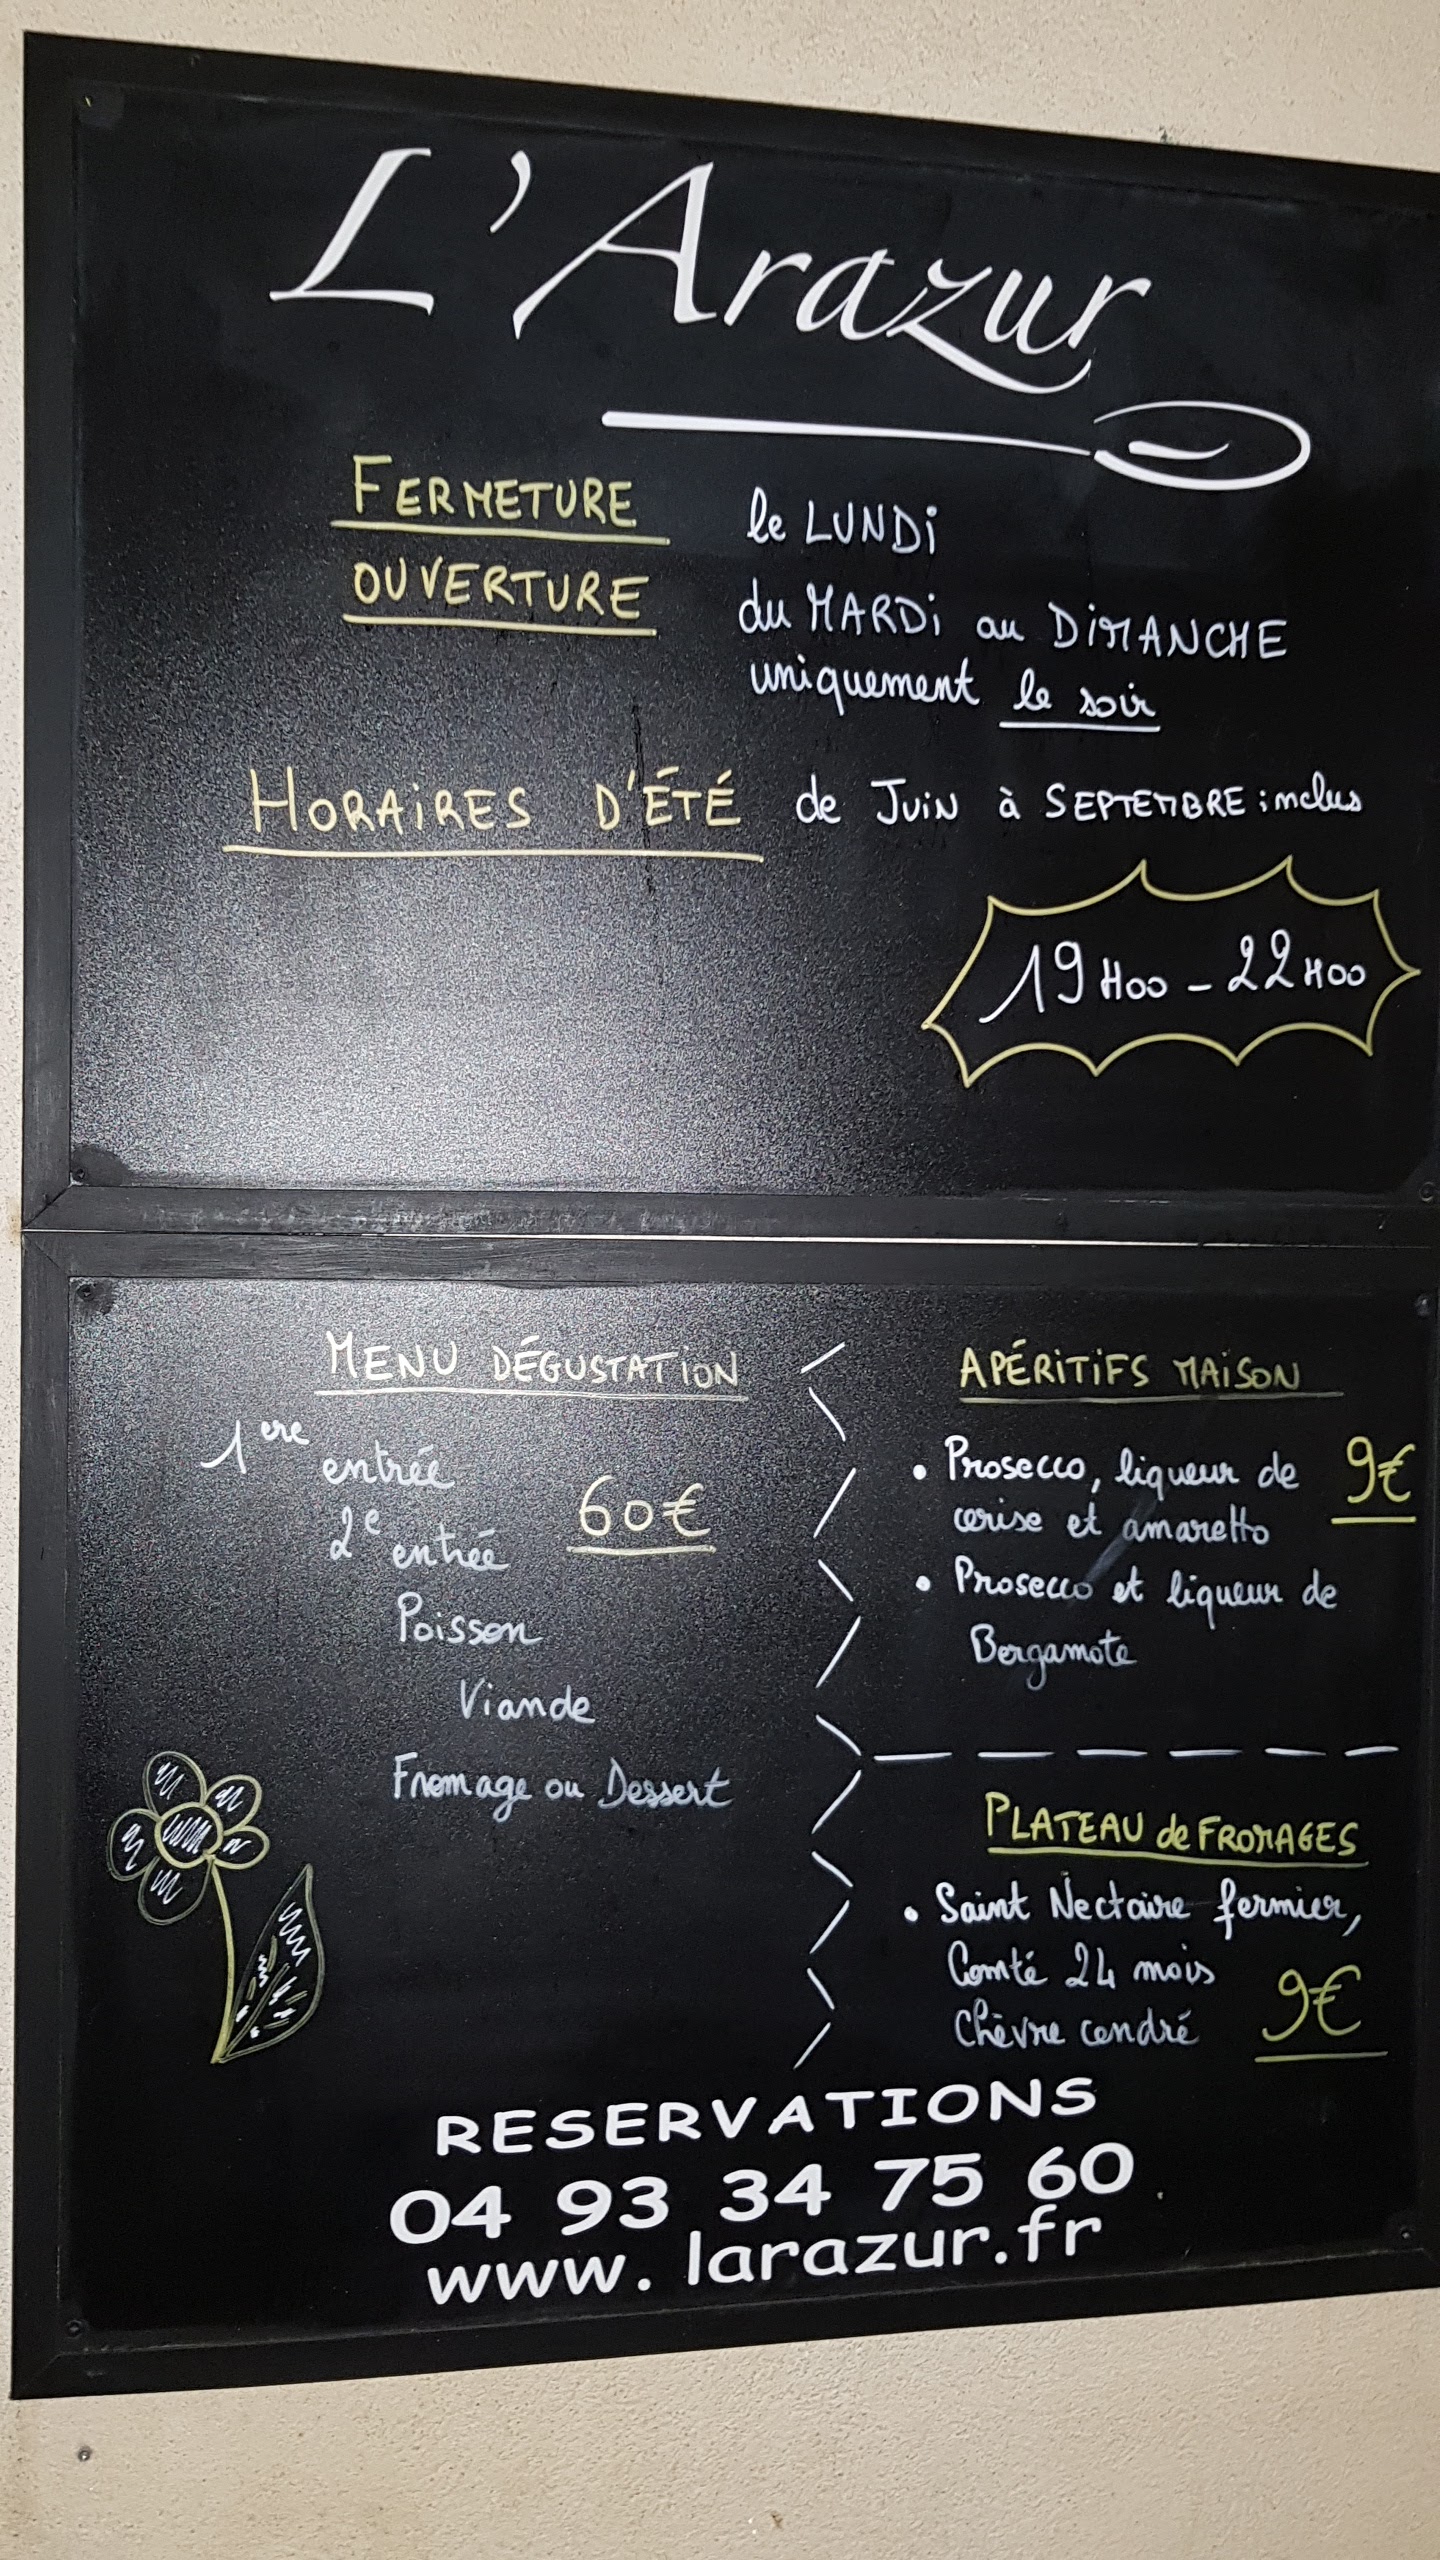 L'Arazur
FERMETURE le LUNDi
OUVERTURE du MARDi au DiMANCHE
uniquement le soir
HORAiRES D'ÉTÉ de JUiN à SEPTEMBRE inclus
19H00 - 22H00
MENU DÉGUSTATiON
1ere entrée
2e entrée
60€
Poisson
Viande
Fromage ou Dessert
APÉRiTiFS MAiSON
• Prosecco, liqueur de 9€
cerise et amaretto
• Prosecco et liqueur de
Bergamote
PLATEAU de FROMAGES
• Saint Nectaire fermier,
Comté 24 mois
Chèvre cendré 9€
RESERVATIONS
04 93 34 75 60
www.larazur.fr